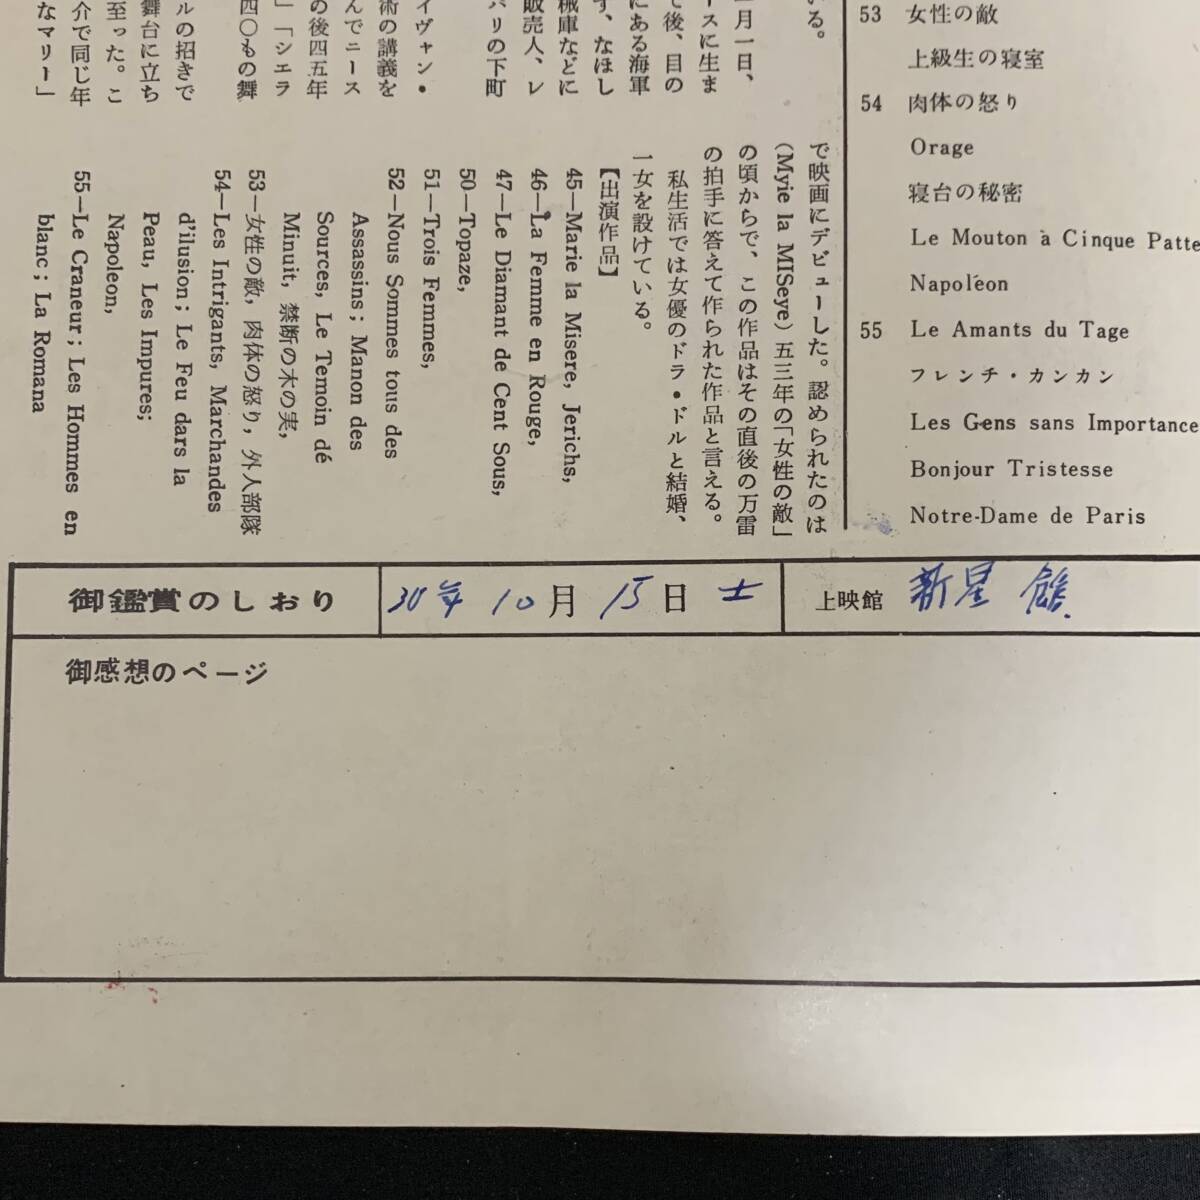 53 女性の敵
上級生の寝室
54 肉体の怒り
Orage
寝台の秘密
Le Mouton à Cinque Patte
Napoléon
55 Le Amants du Tage
フレンチ・カンカン
Les Gens sans Importance
Bonjour Tristesse
Notre-Dame de Paris
いる。
月一日、
ースに生ま
て後、目の
にある海軍
ず、なほし
械庫などに
販売人、レ
パリの下町
イヴァン・
術の講義を
んでニース
の後四五年
」「シエラ
四〇もの舞
ルの招きで
舞台に立ち
至った。こ
介で同じ年
なマリー」
で映画にデビューした。認められたのは
(Myie la MISeye) 五三年の「女性の敵」
の頃からで、この作品はその直後の万雷
の拍手に答えて作られた作品と言える。
私生活では女優のドラ・ドルと結婚、
1女を設けている。
【出演作品】
45—Marie la Misere, Jerichs,
46—La Femme en Rouge,
47—Le Diamant de Cent Sous,
50—Topaze,
51—Trois Femmes,
52—Nous Sommes tous des
Assassins; Manon des
Sources, Le Temoin dé
Minuit, 禁断の木の実,
53—女性の敵, 肉体の怒り, 外人部隊
54—Les Intrigants, Marchandes
d'ilusion; Le Feu dars la
Peau, Les Impures;
Napoleon,
55—Le Craneur; Les Hommes en
blanc; La Romana
御鑑賞のしおり 30年 10月 15日 土 上映館 新星館.
御感想のページ